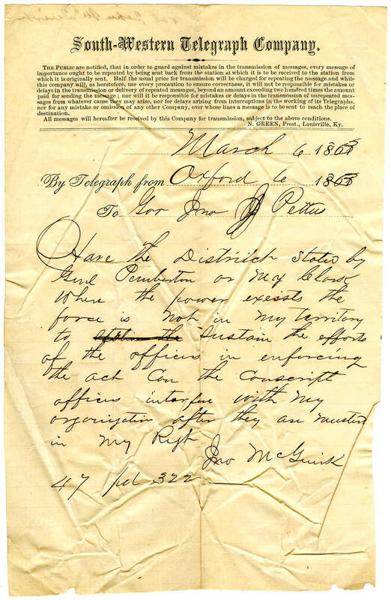 South-Western Telegraph Company.
THE PUBLIC are notified, that in order to guard against mistakes in the transmission of messages, every message of
importance ought to be repeated by being sent back from the station at which it is to be received to the station from
which it is originally sent. Half the usual price for transmission will be charged for repeating the message and while
this company will, as heretofore, use every precaution to ensure correctness, it will not be responsible for mistakes or
delays in the transmission or delivery of repeated messages, beyond an amount exceeding two hundred times the amount
paid for sending the message; nor will it be responsible for mistakes or delays in the transmission of unrepeated mes-
sages from whatever cause they may arise, nor for delays arising from interruptions in the working of its Telegraphs,
nor for any mistake or omission of any other Company, over whose lines a message is to be sent to reach the place of
destination.
All messages will hereafter be received by this Company for transmission, subject to the above conditions.
N. GREEN, Prest., Louisville, Ky.
March 6 1863
By Telegraph from Oxford 6 1863
To Gov Jno J Pettus
Have the Districts States by
Genl Pemberton or Maj Clark
Where the power exists the
force is not in my territory
to sustain the efforts
of the officers in enforcing
the act Can the Conscript
officers interfere with my
organization after they are mustered
in my Regt
Jno McGuirk
47 pd 322